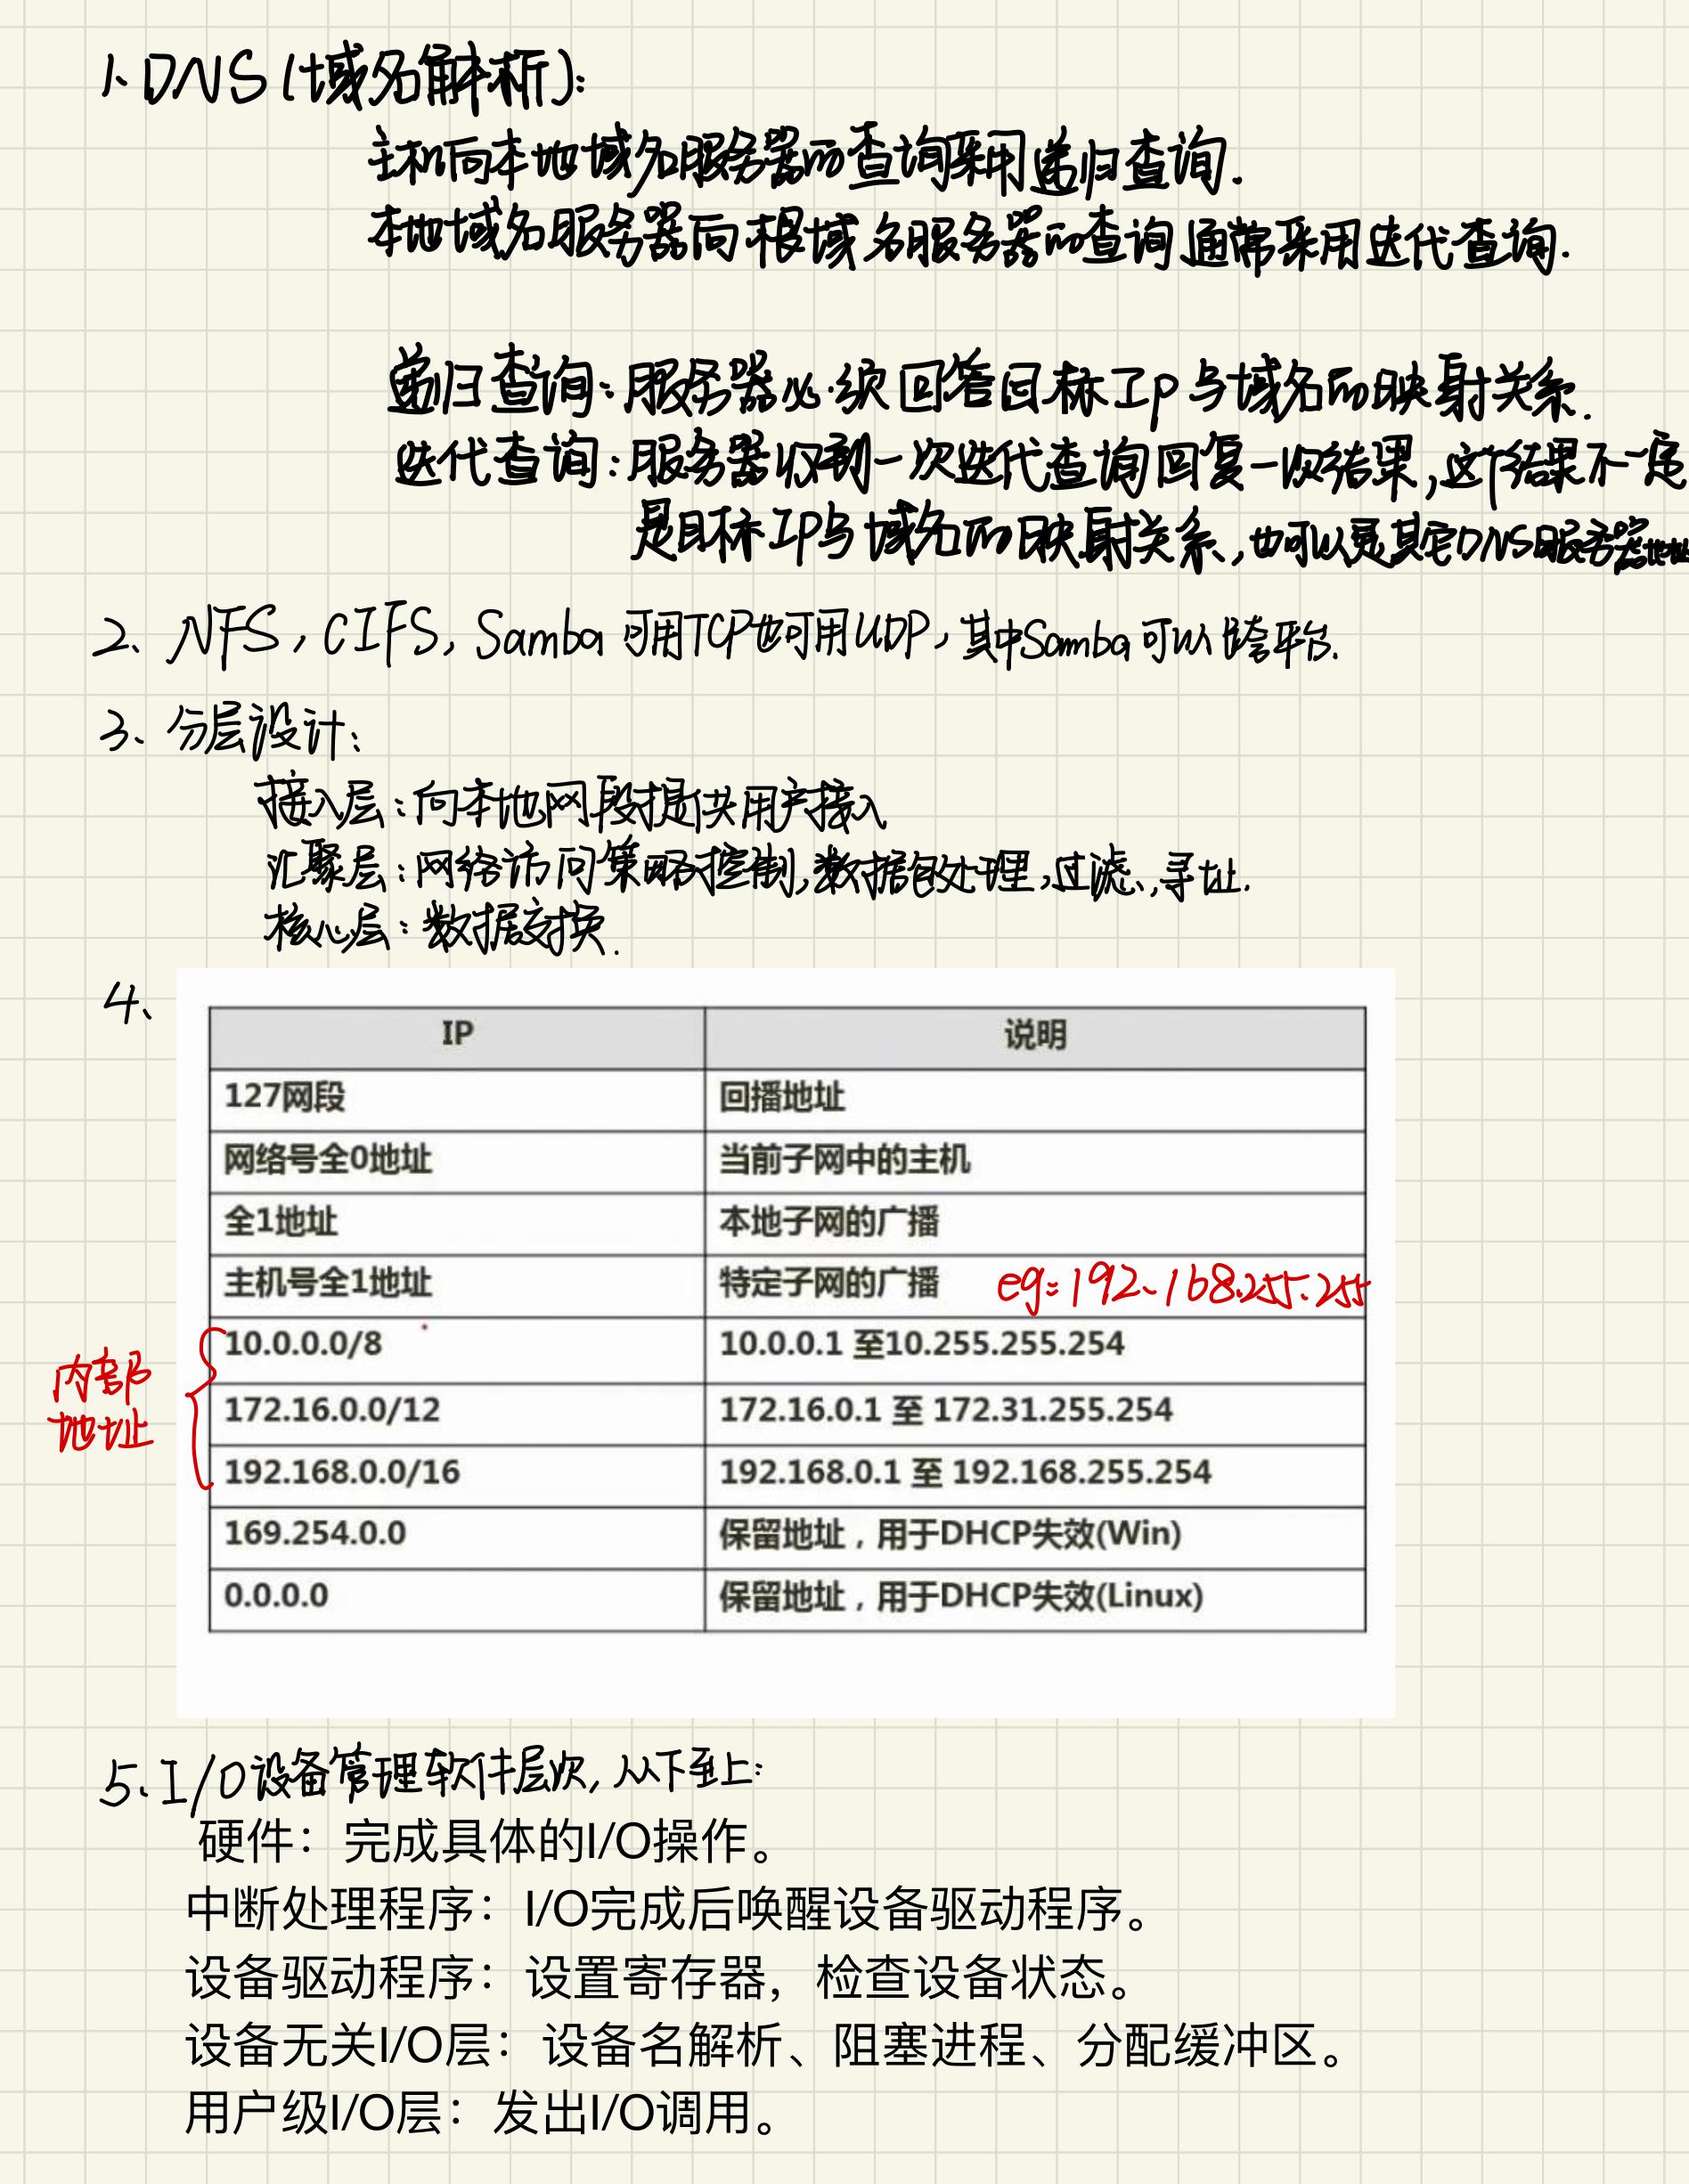 1、DNS(域名解析):
主机向本地域名服务器的查询采用递归查询.
本地域名服务器向根域名服务器的查询通常采用迭代查询.
递归查询:服务器必须回答目标IP与域名的映射关系.
迭代查询:服务器收到一次迭代查询回复一次结果,这个结果不一定
是目标IP与域名的映射关系,也可以是其它DNS服务器地址
2、NFS,CIFS,Samba可用TCP也可用UDP,其中Samba可以跨平台.
3、分层设计:
接入层:向本地网段提供用户接入
汇聚层:网络访问策略控制,数据包处理,过滤、寻址.
核心层:数据交换.
4、
IP 说明
127网段 回播地址
网络号全0地址 当前子网中的主机
全1地址 本地子网的广播
主机号全1地址 特定子网的广播 eg:192.168.255.255
内部地址
10.0.0.0/8 10.0.0.1 至10.255.255.254
172.16.0.0/12 172.16.0.1 至 172.31.255.254
192.168.0.0/16 192.168.0.1 至 192.168.255.254
169.254.0.0 保留地址,用于DHCP失效(Win)
0.0.0.0 保留地址,用于DHCP失效(Linux)
5、I/O设备管理软件层次,从下至上:
硬件:完成具体的I/O操作。
中断处理程序:I/O完成后唤醒设备驱动程序。
设备驱动程序:设置寄存器,检查设备状态。
设备无关I/O层:设备名解析、阻塞进程、分配缓冲区。
用户级I/O层:发出I/O调用。